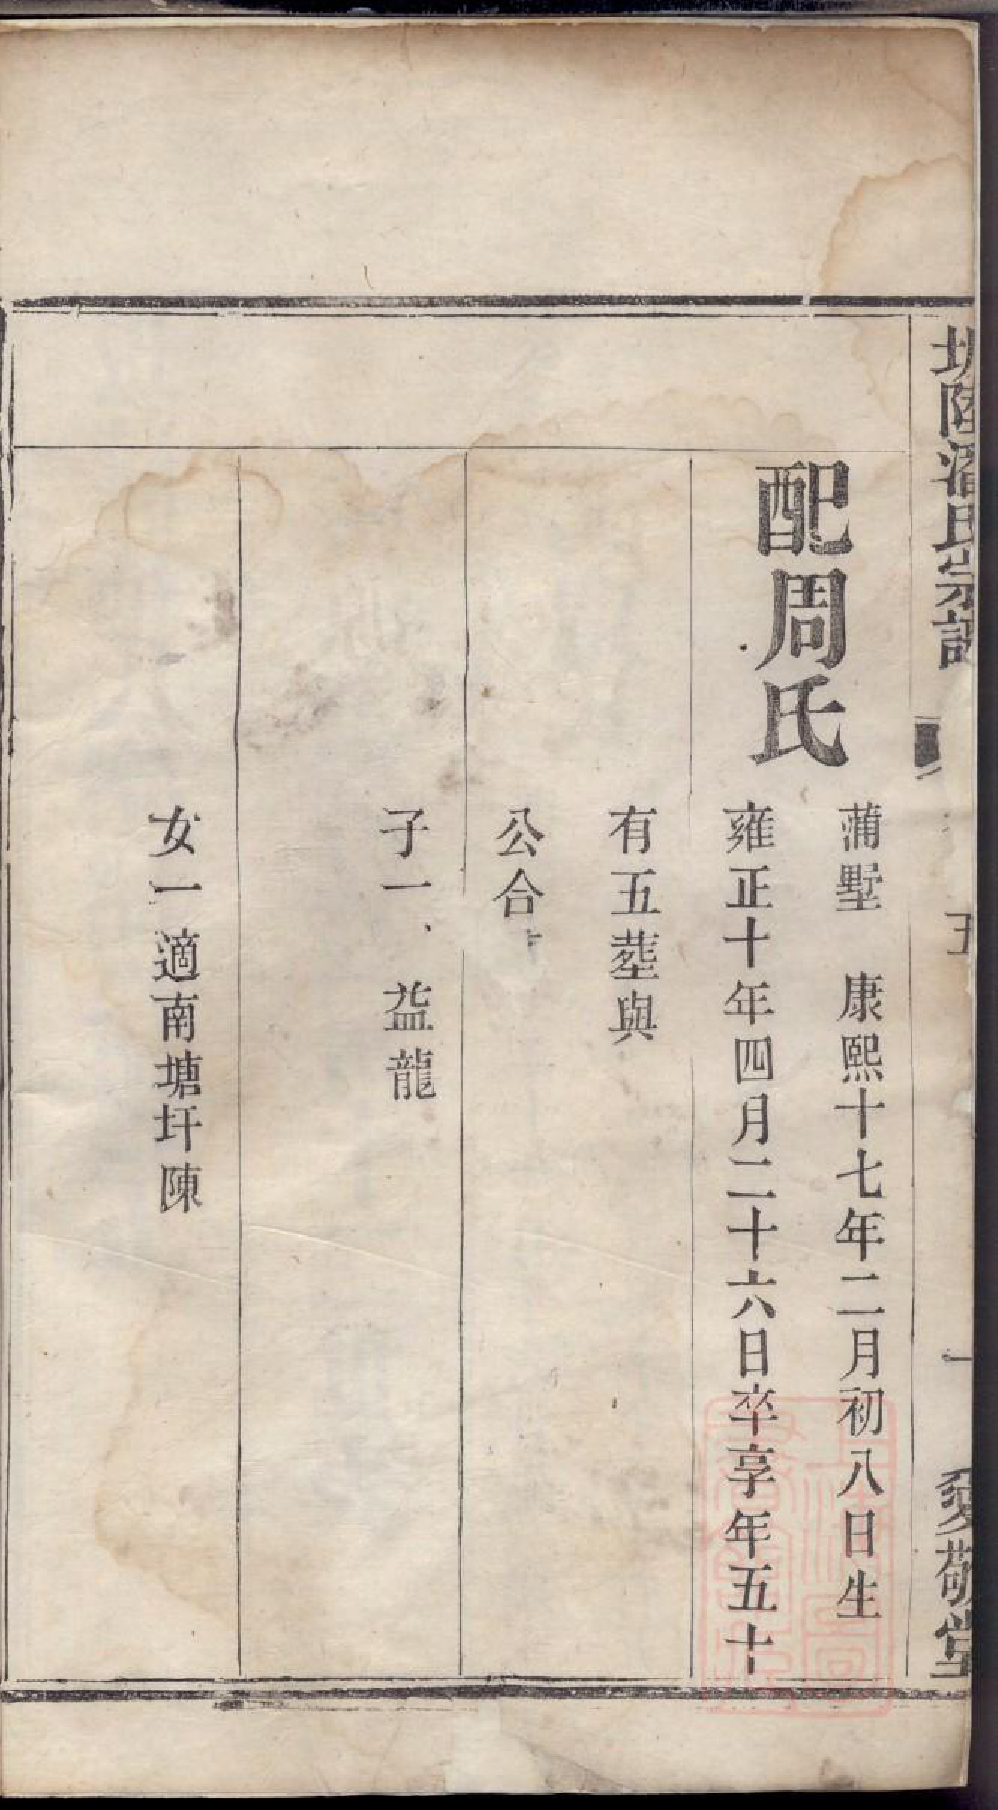 潘氏宗譜
五
一
愛敬堂
配周氏
蒲墅 康熙十七年二月初八日生
雍正十年四月二十六日卒享年五十
有五塟與
公合
子一 益龍
女一適南塘圩陳